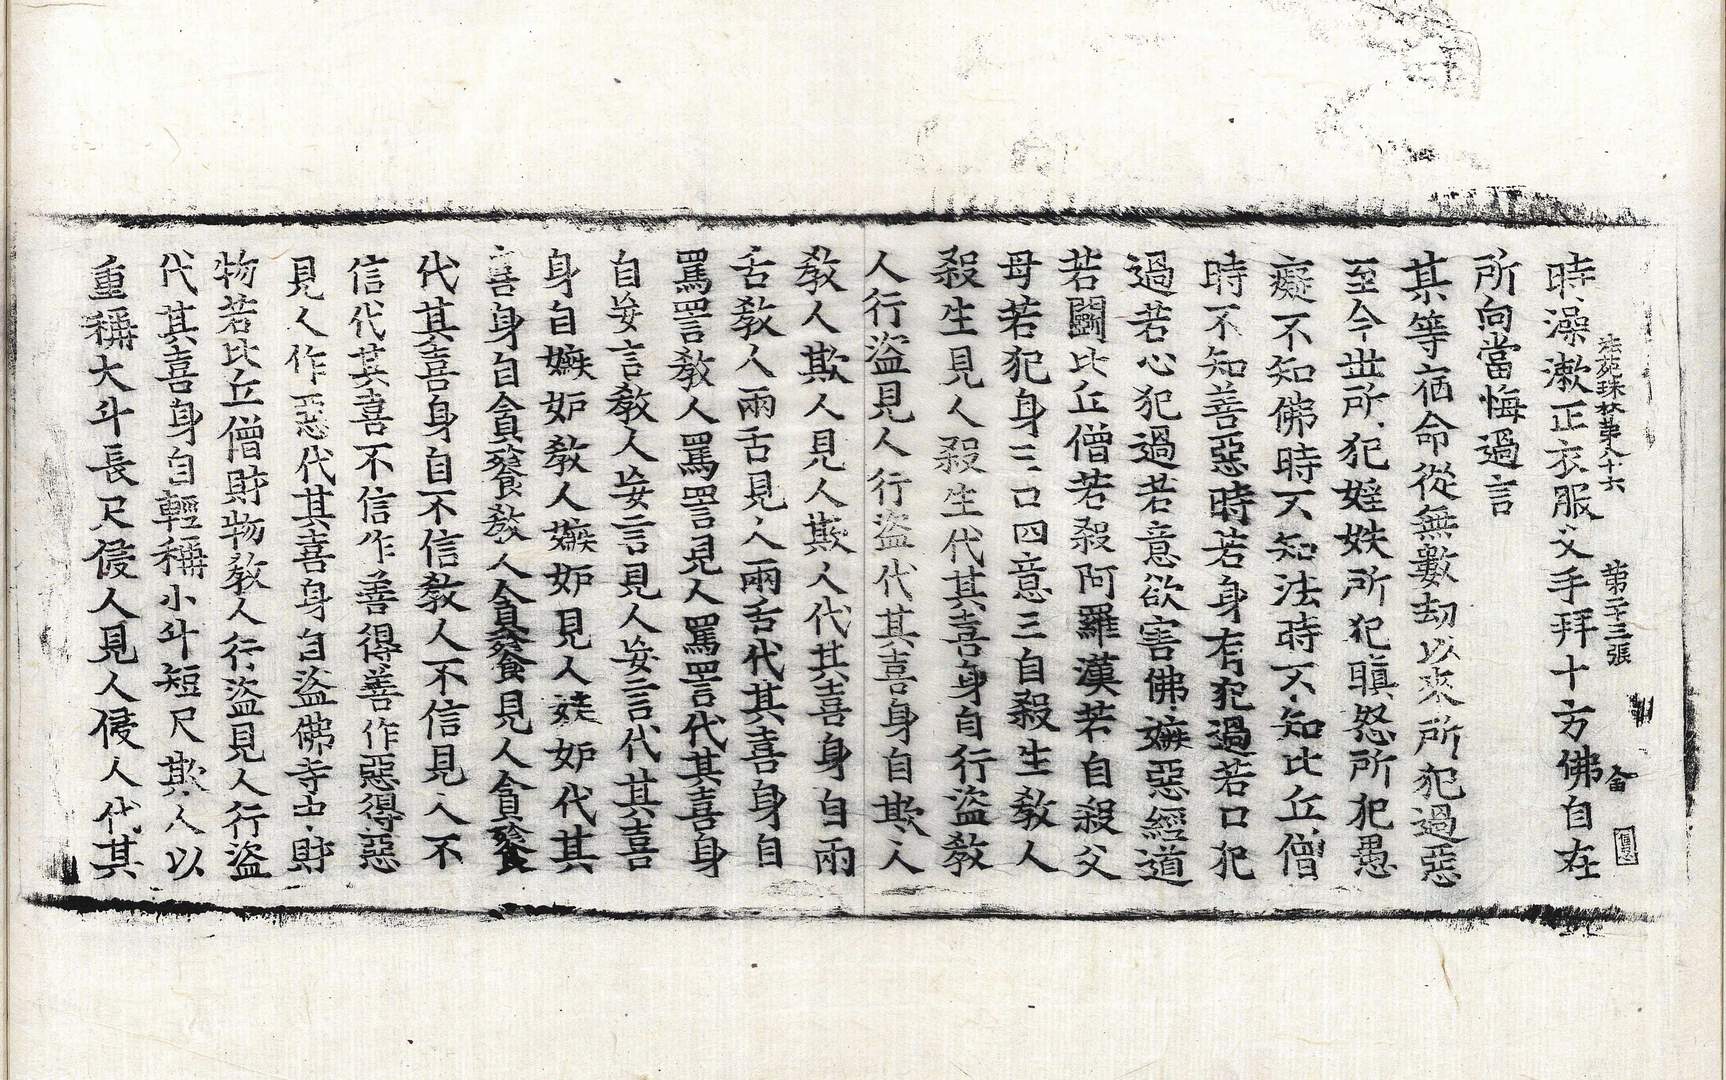 時澡漱正衣服叉手拜十方佛自在
法苑珠林第八十六 第二十三張 畣
所向當悔過言
某等宿命從無數劫以來所犯過惡
至今世所犯婬妷所犯瞋怒所犯愚
癡不知佛時不知法時不知比丘僧
時不知善惡時若身有犯過若口犯
過若心犯過若意欲害佛嫉惡經道
若鬪比丘僧若殺阿羅漢若自殺父
母若犯身三口四意三自殺生教人
殺生見人殺生代其喜身自行盜教
人行盜見人行盜代其喜身自欺人
教人欺人見人欺人代其喜身自兩
舌教人兩舌見人兩舌代其喜身自
罵詈教人罵詈見人罵詈代其喜身
自妄言教人妄言見人妄言代其喜
身自嫉妬教人嫉妬見人嫉妬代其
喜身自貪餮教人貪餮見人貪餮
代其喜身自不信教人不信見人不
信代其喜不信作善得善作惡得惡
見人作惡代其喜身自盜佛寺中財
物若比丘僧財物教人行盜見人行盜
代其喜身自輕稱小斗短尺欺人以
重稱大斗長尺侵人見人侵人代其